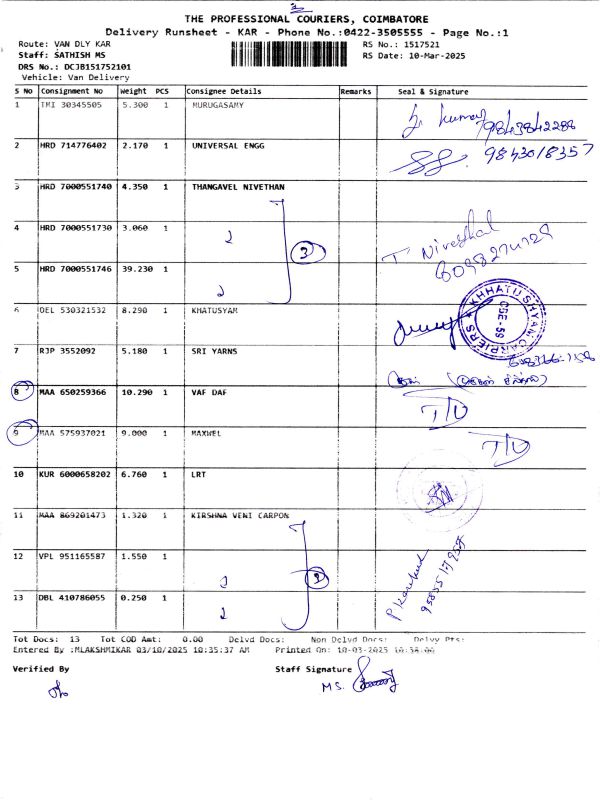 THE PROFESSIONAL COURIERS, COIMBATORE
Delivery Runsheet - KAR - Phone No.:0422-3505555 - Page No.:1
Route: VAN DLY KAR RS No.: 1517521
Staff: SATHISH MS RS Date: 10-Mar-2025
DRS No.: DCJB151752101
Vehicle: Van Delivery
S No Consignment No Weight PCS Consignee Details Remarks Seal & Signature
1 IMI 30345505 5.300 1 MURUGASAMY
kumar 79843842288
2 HRD 714776402 2.170 1 UNIVERSAL ENGG
9843018357
3 HRD 7000551740 4.350 1 THANGAVEL NIVETHAN
4 HRD 7000551730 3.060 1
3 T Nivethal
5 HRD 7000551746 39.230 1
6 DEL 530321532 8.290 1 KHATUSYAM
KHHATU SHYAM CARRIERS
CBE-SS
7 RJP 3552092 5.180 1 SRI YARNS
8 MAA 650259366 10.290 1 VAF DAF
T/D
9 MAA 575937021 9.000 1 MAXWEL
T/D
10 KUR 6000658202 6.760 1 LRT
11 MAA 869201473 1.320 1 KIRSHNA VENI CARPON
12 VPL 951165587 1.550 1
2
13 DBL 410786055 0.250 1
Tot Docs: 13 Tot COD Amt: 0.00 Delvd Docs: Non Delvd Docs: Delvy Pts:
Entered By :MLAKSHMIKAR 03/10/2025 10:35:37 AM Printed On: 10-03-2025 10:36:00
Verified By Staff Signature
MS.